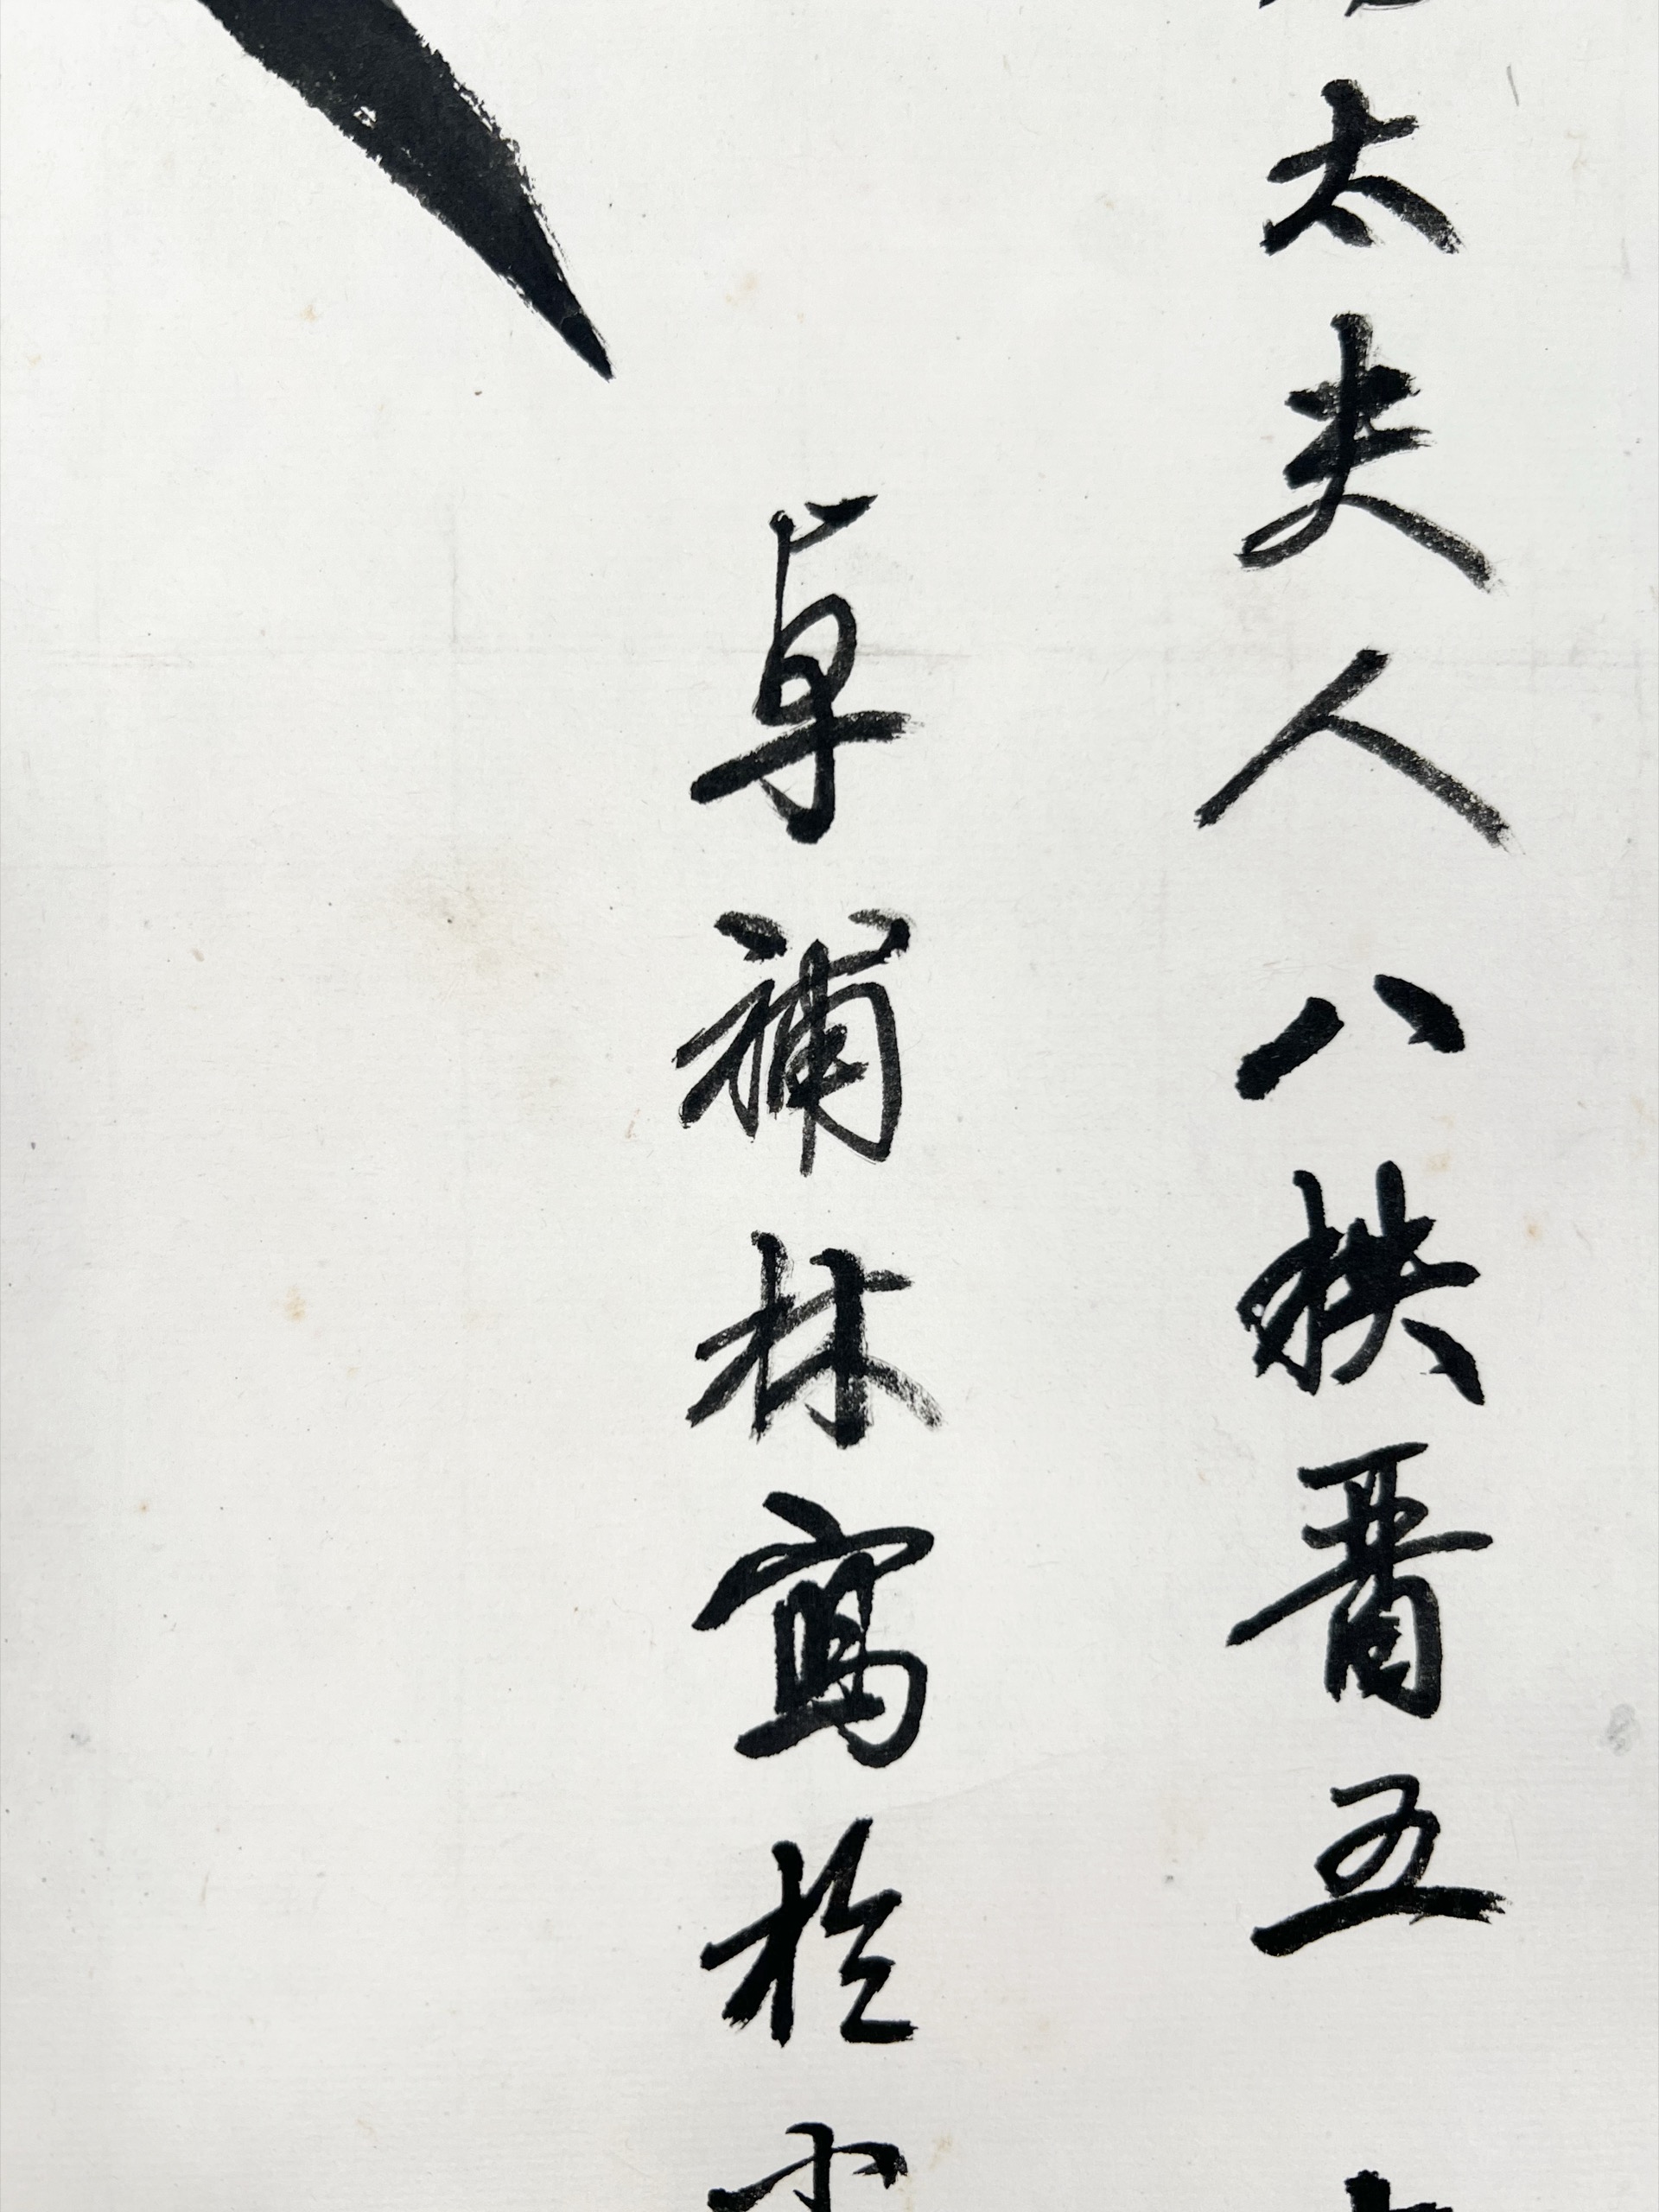 太夫人八秩晋五
卓補林寫於